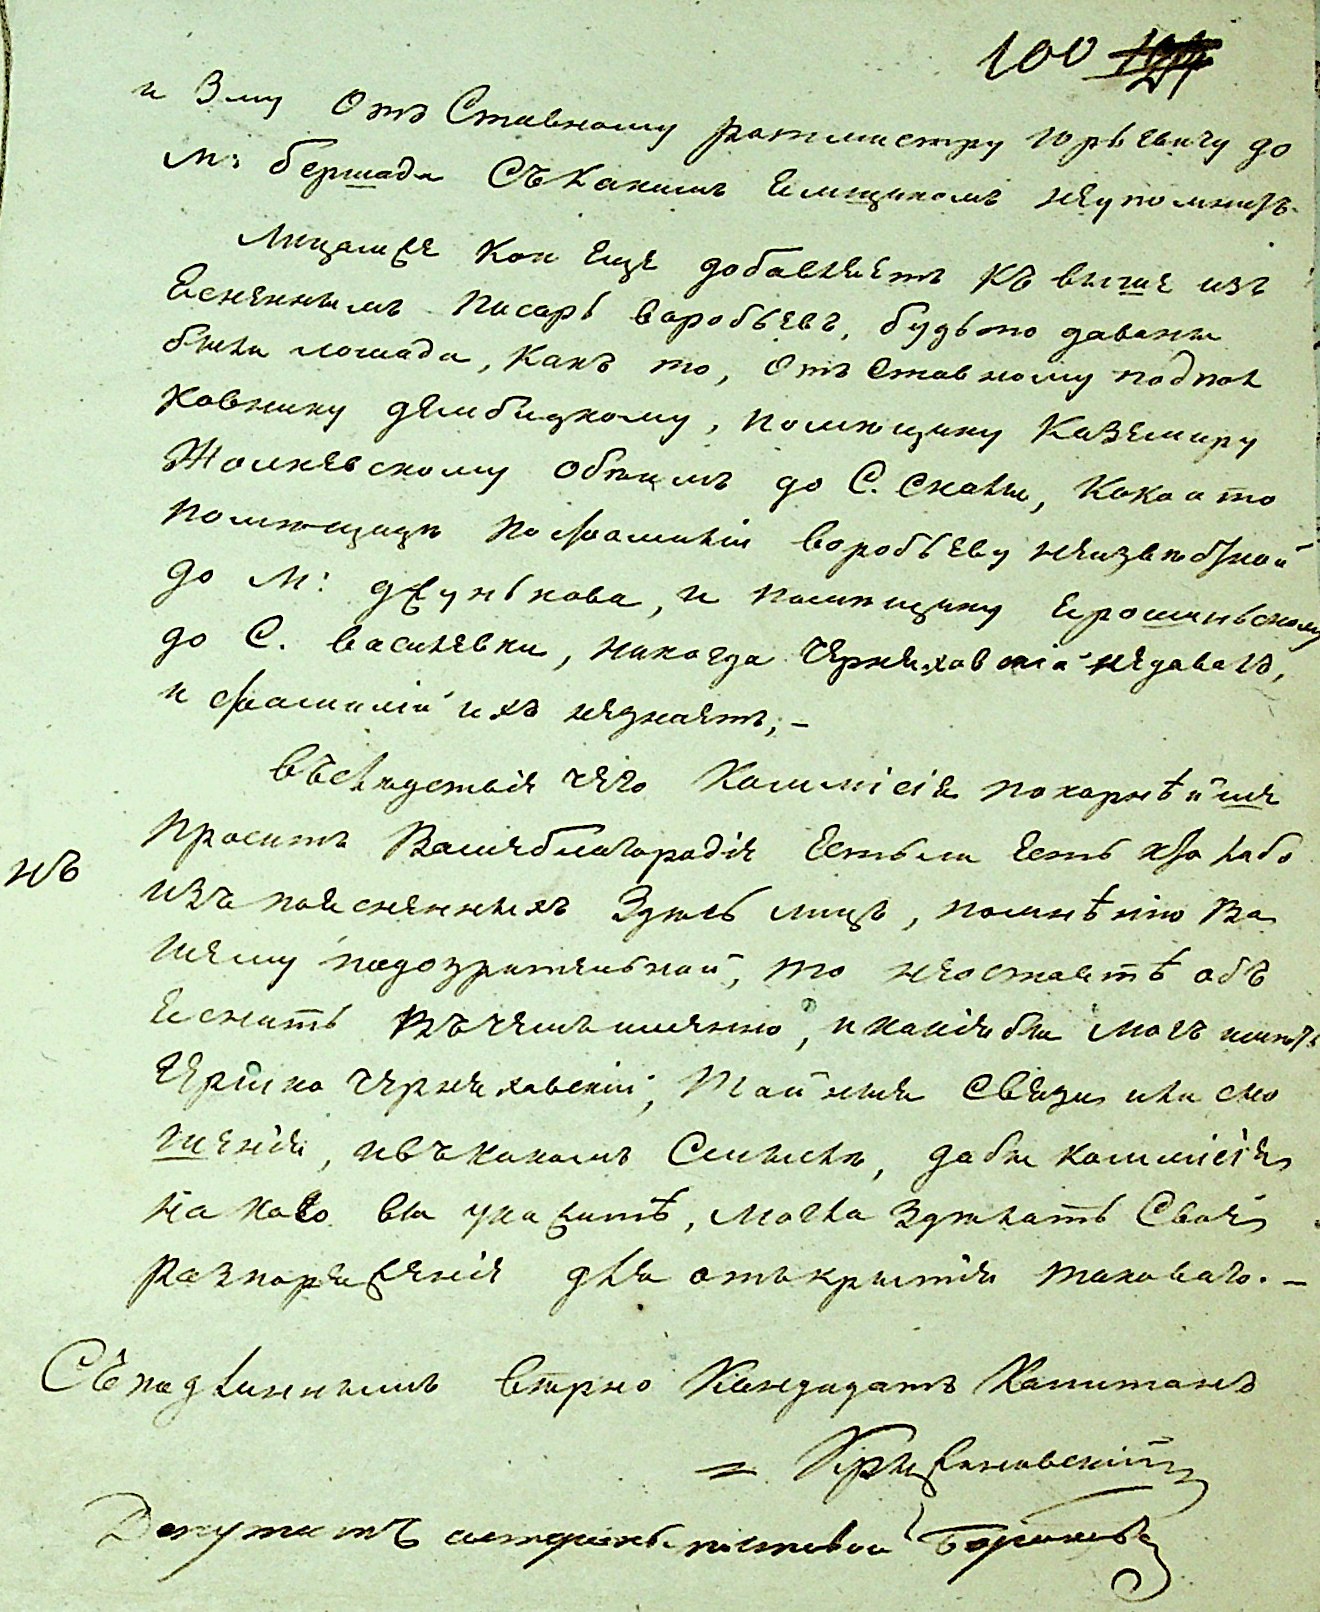 100
и 3му Отъ Ставному ротмистру Юрьевичу до
м: бершади Съ какимъ Емщикомъ неупомнитъ.
Лицамже кои еще добавляетъ къ выше изъ
ясненнымъ писарь воробьевъ, будьто даваны
были лошади, какъ то, Отъ Ставному подпол
ковнику дембицкому, помещику Каземиру
Жолкевскому обоимъ до С. Скалы, какоа то
помещице по фамиліи воробьеву неизвестной
до М: джунькова, и помещику Ерошиньскому
до С. василевки, никогда Черняховскій недавалъ,
и фамилій ихъ незнаетъ, —
въследствія чего Коммісія покорнѣйше
проситъ Вашеблагородія Естьли Есть кто либо
нъ
изъ поясненныхъ Здесь лицъ, помнѣнію Ва
шему подозрительной, то неоставтѣ объ
яснить въчемъименно, и какіябы могъ иметь
Ершко Черняховскій, тайныя Связи или сно
шенія, ивъкакомъ Смысле, дабы коммісія
на кого вы укажитѣ, могла Зделать Свои
разпоряженія для отъкрытія таковаго. —
Съподлиннымъ верно Кандидатъ Капитанъ
Депутатъ почтовой